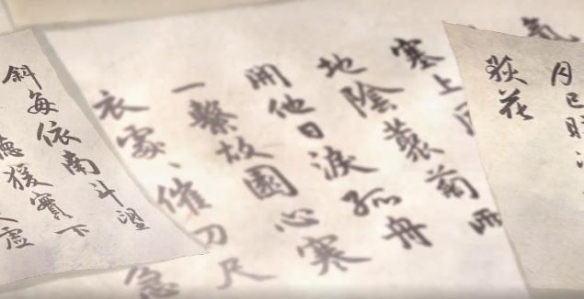 氣
月已映
荻花
塞上風
地陰叢菊兩
開他日淚孤舟
一繫故園心寒
衣處、催刀尺
急
斜每依南斗望
聽猿實下
虛